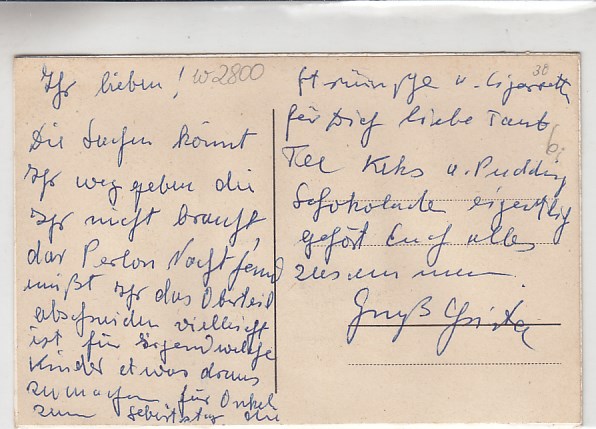 Ihr lieben! W2800
Die Sachen könnt
Ihr weg geben die
Ihr nicht braucht,
das Perlon Nachthemd
müßt Ihr das Oberteil
abschneiden vielleicht
ist für irgendwelche
Kinder etwas draus
zu machen, für Onkel
zum Geburtstag die
30
Strümpfe u. Cigaretten
für Dich liebe Tante
Tee Keks u. Pudding
Schokolade eigentlich
gehört Euch alles
zusammen
Gruß